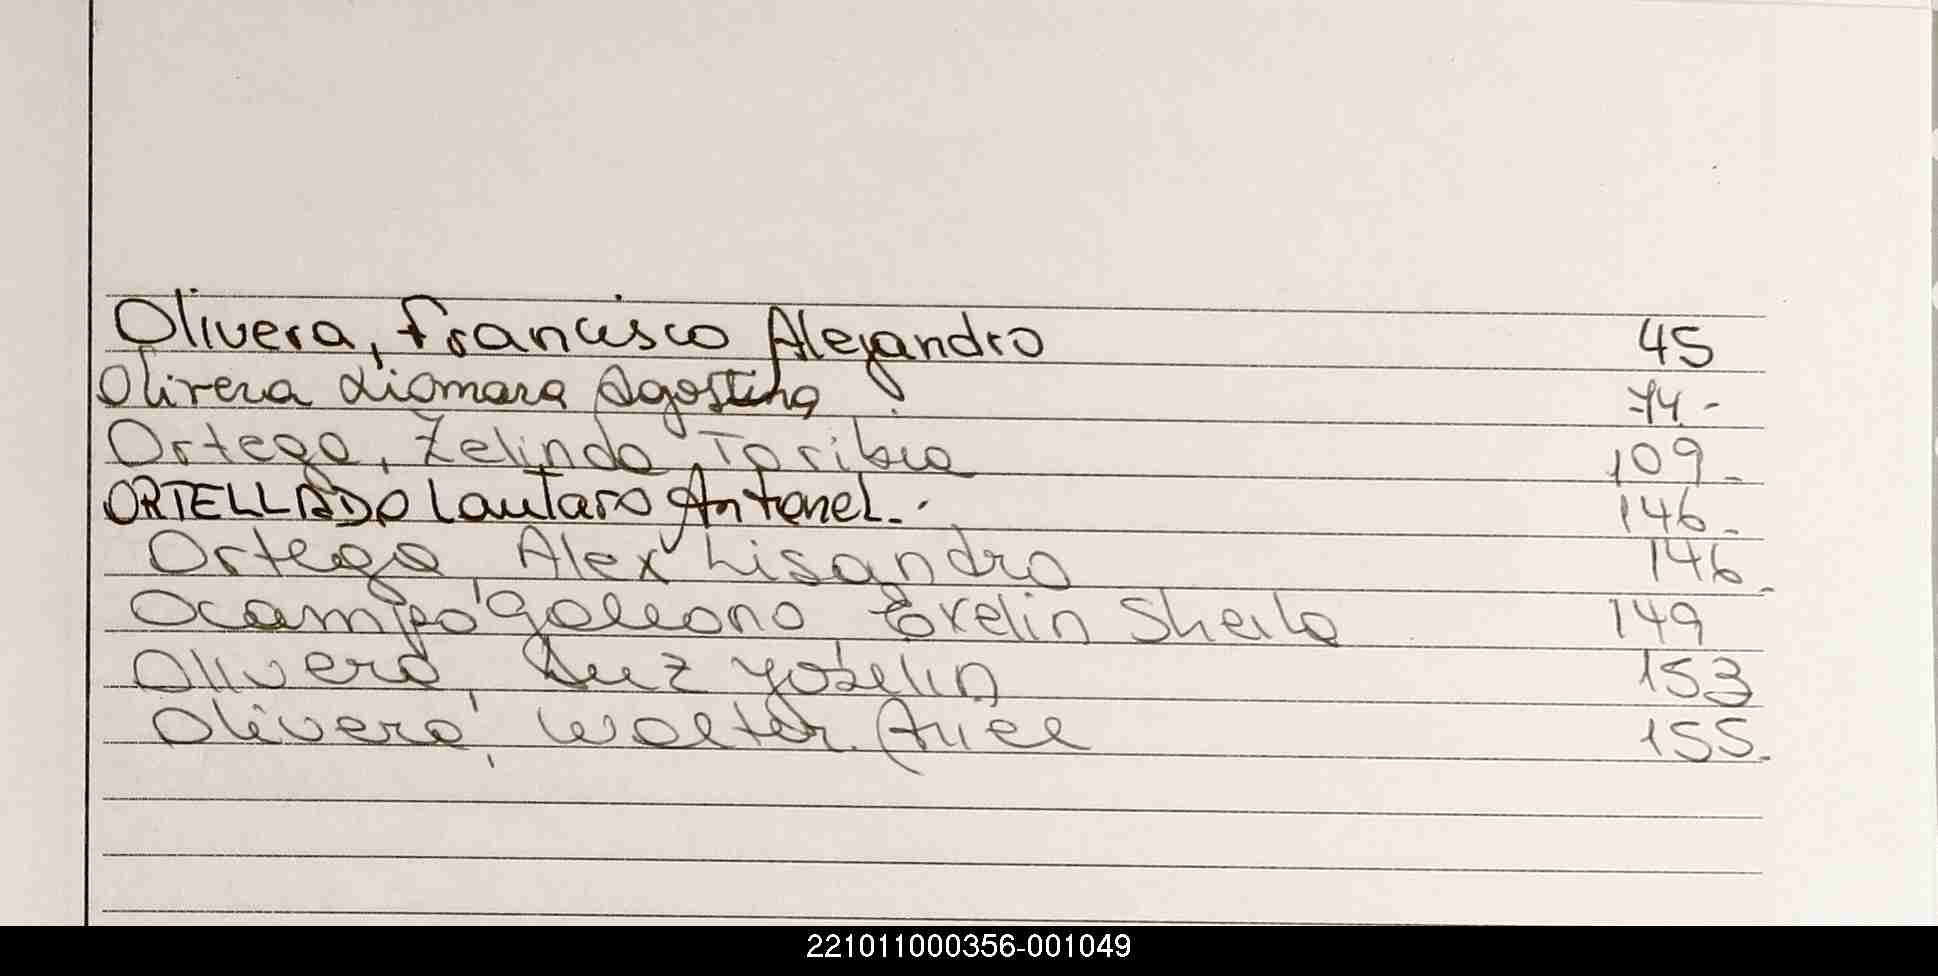 Olivera, Francisco Alejandro 45
Olivera Xiomara Agostina 74.-
Ortega, Zelinda Toribia 109-
ORTELLADO Lautaro Antonel.- 146-
Ortega, Alex Lisandro 146-
Ocampo Galeano Evelin Sheila 149
Olivera, Luz Yoselin 153
Olivera, Walter Ariel 155-
221011000356-001049